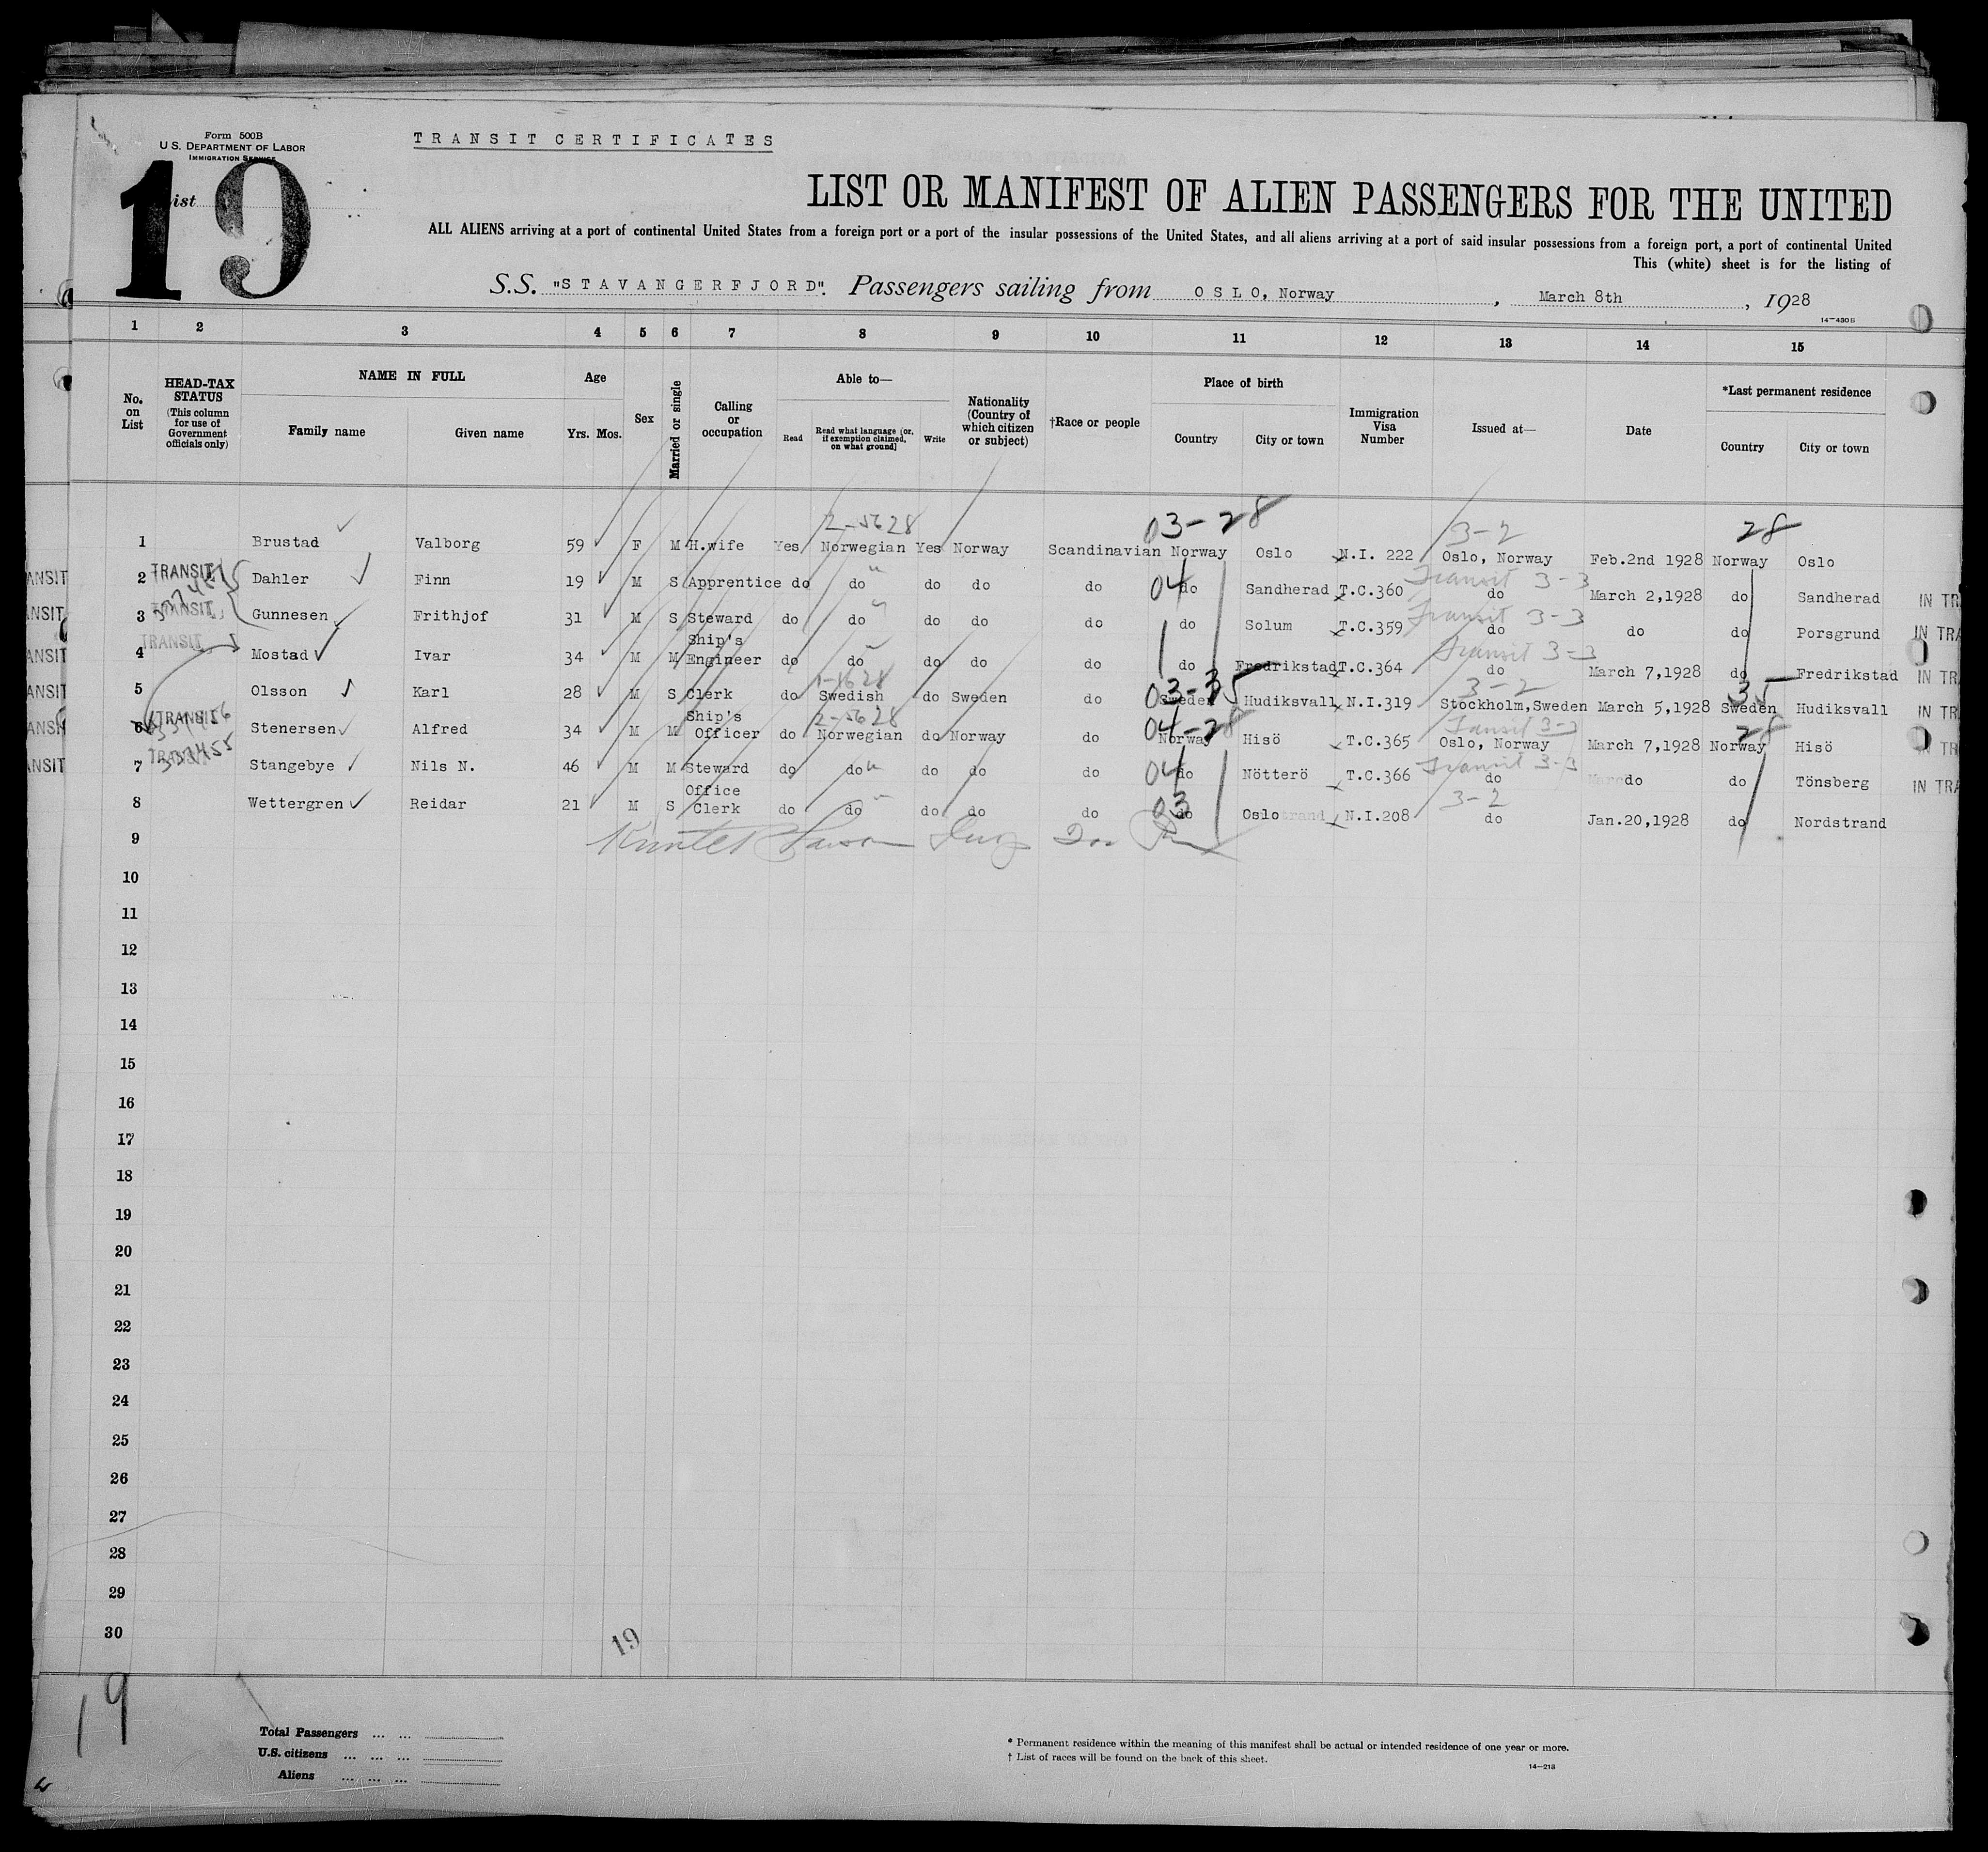 Form 500B
U. S. DEPARTMENT OF LABOR
IMMIGRATION SERVICE
TRANSIT CERTIFICATES
19
ist
LIST OR MANIFEST OF ALIEN PASSENGERS FOR THE UNITED
ALL ALIENS arriving at a port of continental United States from a foreign port or a port of the insular possessions of the United States, and all aliens arriving at a port of said insular possessions from a foreign port, a port of continental United
This (white) sheet is for the listing of
S.S. "STAVANGERFJORD". Passengers sailing from OSLO, Norway, March 8th, 1928
14-430B
1 2 3 4 5 6 7 8 9 10 11 12 13 14 15
No. on List
HEAD-TAX STATUS (This column for use of Government officials only)
NAME IN FULL
Family name Given name
Age
Yrs. Mos.
Sex
Married or single
Calling or occupation
Able to—
Read Read what language (or, if exemption claimed, on what ground) Write
Nationality (Country of which citizen or subject)
†Race or people
Place of birth
Country City or town
Immigration Visa Number
Issued at—
Date
*Last permanent residence
Country City or town
2-5628 03-28 3-2 28
1 Brustad Valborg 59 F M H.wife Yes Norwegian Yes Norway Scandinavian Norway Oslo N.I. 222 Oslo, Norway Feb.2nd 1928 Norway Oslo
ANSIT 2 TRANSIT Dahler Finn 19 M S Apprentice do do " do do do 04 do Sandherad T.C.360 Transit 3-3 do March 2,1928 do Sandherad IN TR
ANSIT 3 TRANSIT Gunnesen Frithjof 31 M S Steward do do " do do do do Solum T.C.359 Transit 3-3 do do do Porsgrund IN TRA
ANSIT 4 TRANSIT Mostad Ivar 34 M M Ship's Engineer do do do do do do Fredrikstad T.C.364 Transit 3-3 do March 7,1928 do Fredrikstad IN TR
ANSIT 5 Olsson Karl 28 M S Clerk do Swedish do Sweden do 03-35 Sweden Hudiksvall N.I.319 3-2 Stockholm,Sweden March 5,1928 35 Sweden Hudiksvall IN TR
ANSIT 6 TRANSIT Stenersen Alfred 34 M M Ship's Officer do 2-5628 Norwegian do Norway do 04-28 Norway Hisö T.C.365 Transit 3-3 Oslo, Norway March 7,1928 28 Norway Hisö IN TR
ANSIT 7 TRANSIT 337455 Stangebye Nils N. 46 M M Steward do do " do do do 04 do Nötterö T.C.366 Transit 3-3 do do do Tönsberg IN TRA
8 Wettergren Reidar 21 M S Office Clerk do do do do do 03 do Oslo N.I.208 3-2 do Jan.20,1928 do Nordstrand
9
10
11
12
13
14
15
16
17
18
19
20
21
22
23
24
25
26
27
28
29
30
19
19
Total Passengers ... ...
U.S. citizens ... ... ...
Aliens ... ... ...
* Permanent residence within the meaning of this manifest shall be actual or intended residence of one year or more.
† List of races will be found on the back of this sheet.
14-218